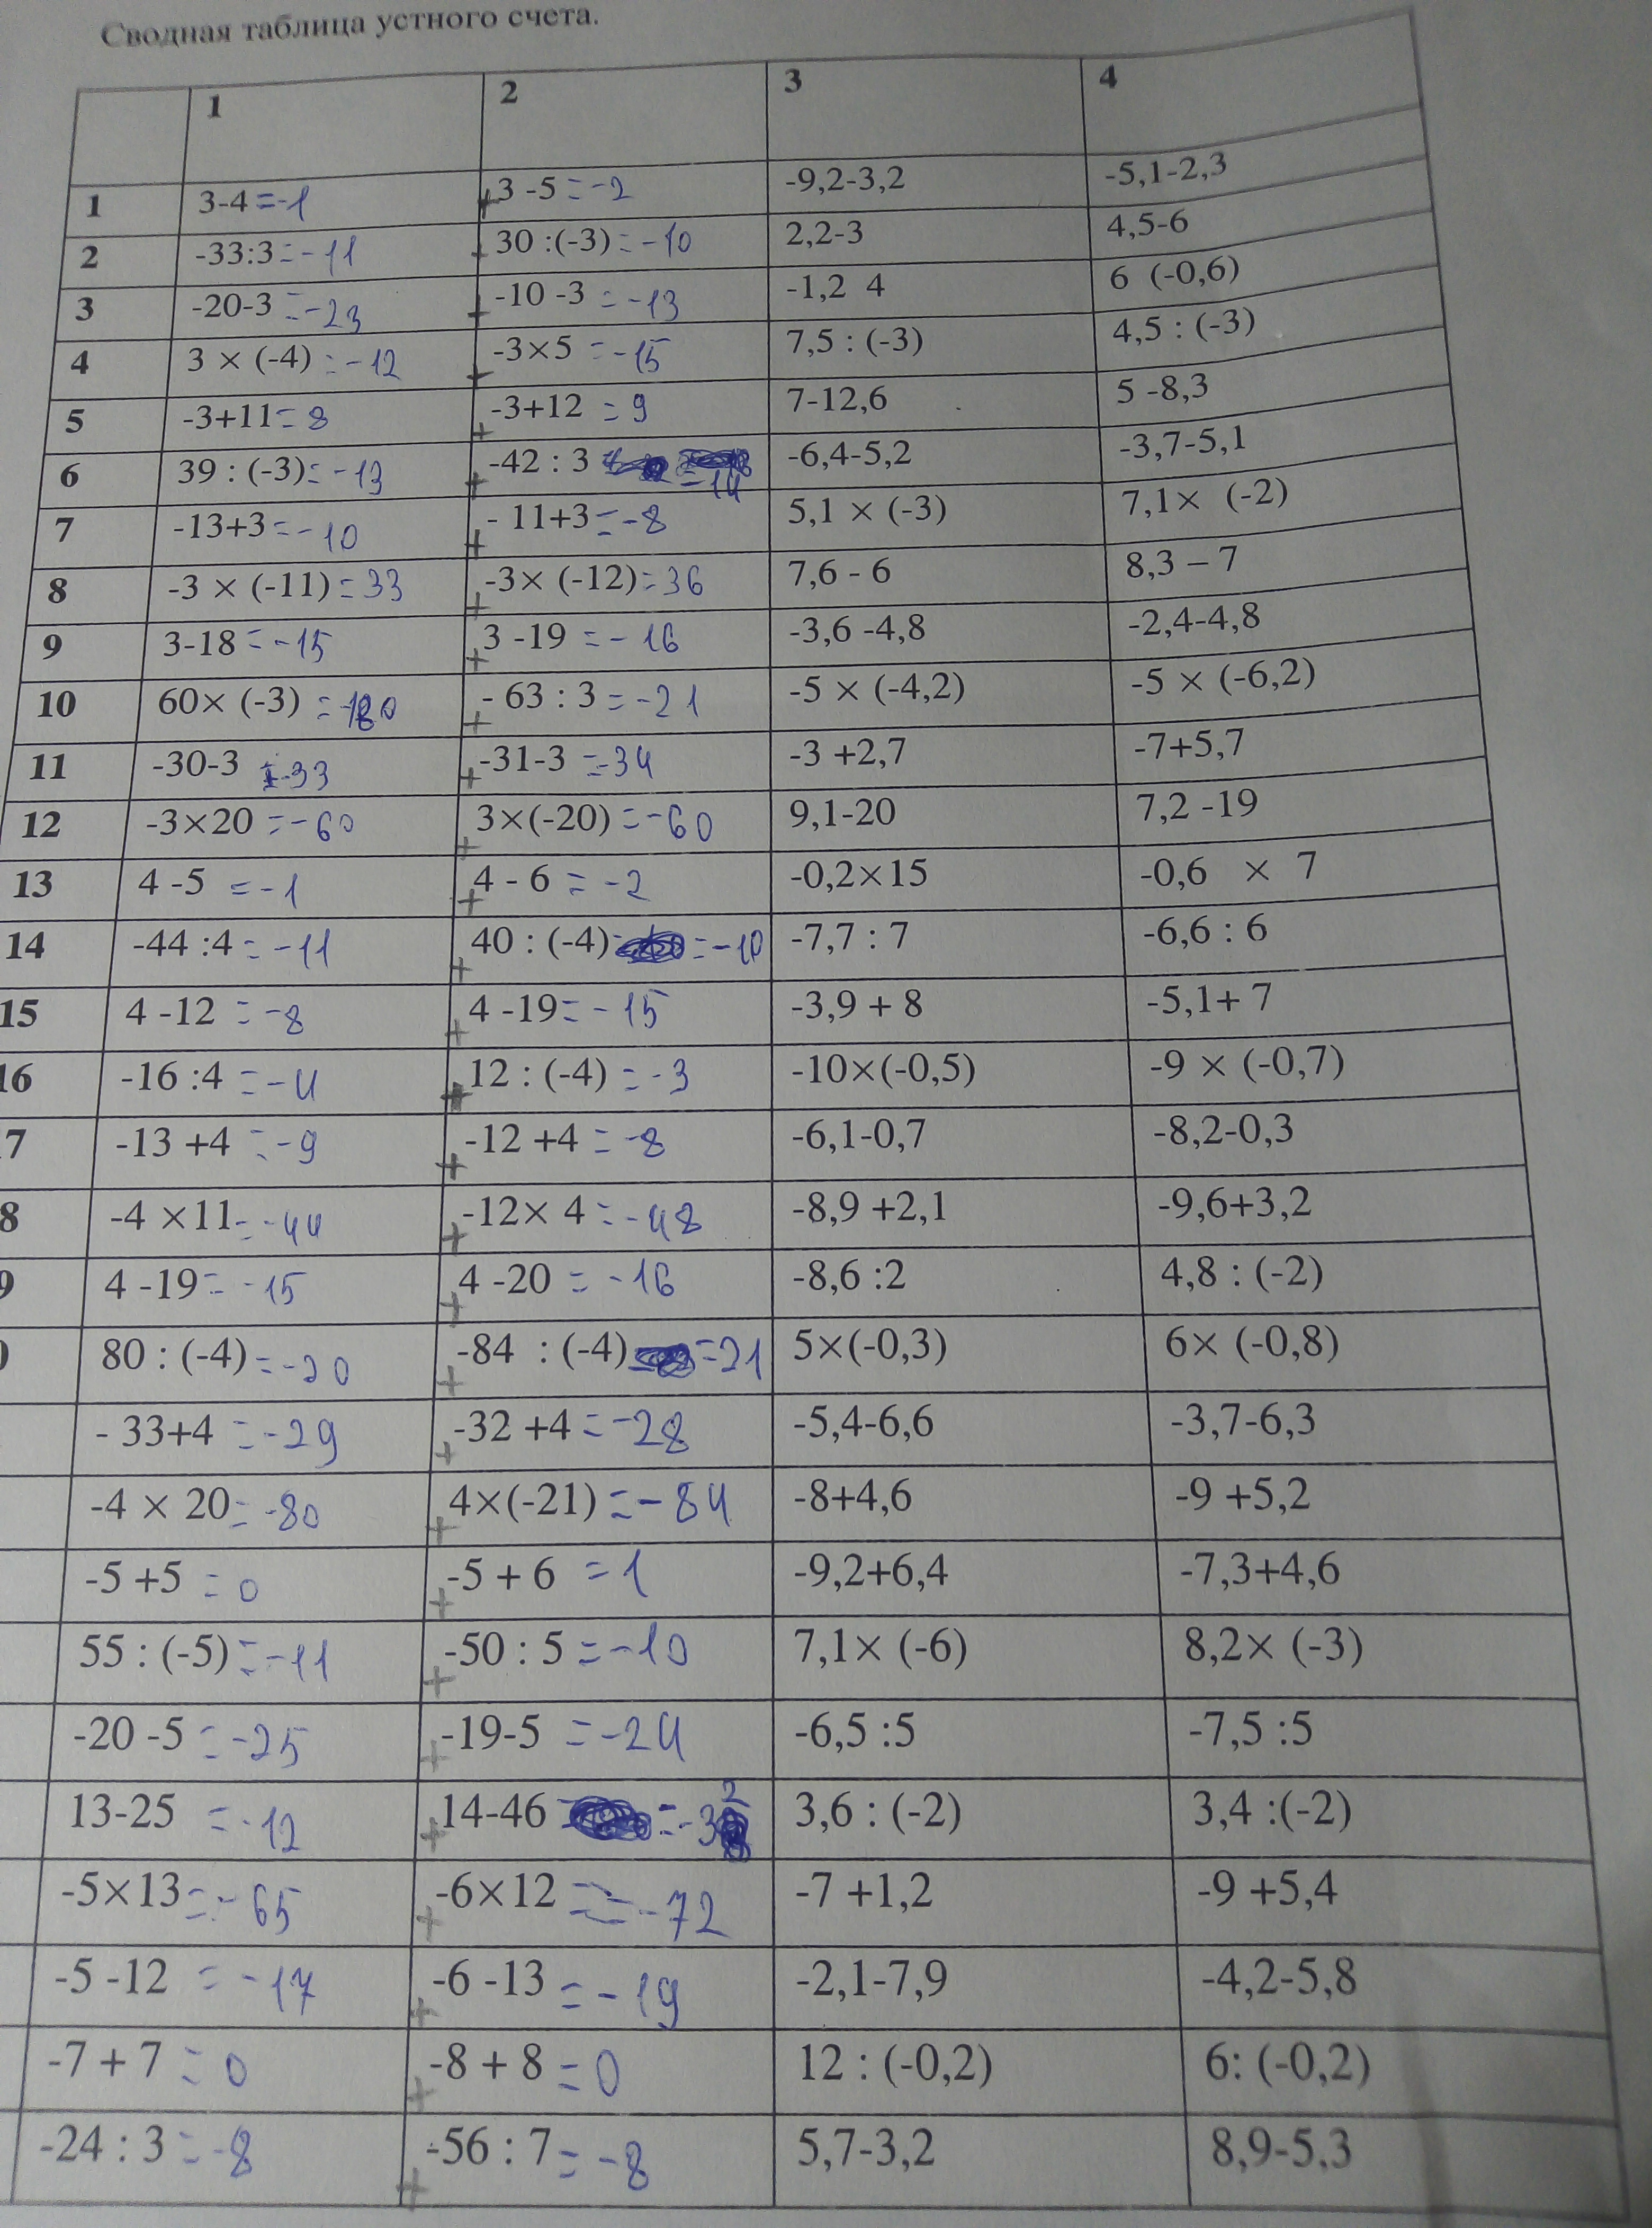 Сводная таблица устного счета.
1 2 3 4
1 3-4 =-1 3 -5 =-2 -9,2-3,2 -5,1-2,3
2 -33:3=-11 30 :(-3)=-10 2,2-3 4,5-6
3 -20-3 =-23 -10 -3 =-13 -1,2 4 6 (-0,6)
4 3 × (-4) =-12 -3×5 =-15 7,5 : (-3) 4,5 : (-3)
5 -3+11=8 -3+12 =9 7-12,6 5 -8,3
6 39 : (-3)=-13 -42 : 3 =-14 -6,4-5,2 -3,7-5,1
7 -13+3=-10 - 11+3=-8 5,1 × (-3) 7,1× (-2)
8 -3 × (-11)=33 -3× (-12)=36 7,6 - 6 8,3 – 7
9 3-18 =-15 3 -19 =-16 -3,6 -4,8 -2,4-4,8
10 60× (-3) =-180 - 63 : 3 =-21 -5 × (-4,2) -5 × (-6,2)
11 -30-3 =-33 -31-3 =-34 -3 +2,7 -7+5,7
12 -3×20 =-60 3×(-20) =-60 9,1-20 7,2 -19
13 4 -5 =-1 4 - 6 =-2 -0,2×15 -0,6 × 7
14 -44 :4 =-11 40 : (-4) =-10 -7,7 : 7 -6,6 : 6
15 4 -12 =-8 4 -19=-15 -3,9 + 8 -5,1+ 7
16 -16 :4 =-4 12 : (-4) =-3 -10×(-0,5) -9 × (-0,7)
7 -13 +4 =-9 -12 +4 =-8 -6,1-0,7 -8,2-0,3
8 -4 ×11=-44 -12× 4 =-48 -8,9 +2,1 -9,6+3,2
9 4 -19=-15 4 -20 =-16 -8,6 :2 4,8 : (-2)
80 : (-4) =-20 -84 : (-4) =21 5×(-0,3) 6× (-0,8)
- 33+4 =-29 -32 +4 =-28 -5,4-6,6 -3,7-6,3
-4 × 20=-80 4×(-21) =-84 -8+4,6 -9 +5,2
-5 +5 =0 -5 + 6 =1 -9,2+6,4 -7,3+4,6
55 : (-5)=-11 -50 : 5 =-10 7,1× (-6) 8,2× (-3)
-20 -5 =-25 -19-5 =-24 -6,5 :5 -7,5 :5
13-25 =-12 14-46 =-32 3,6 : (-2) 3,4 :(-2)
-5×13=-65 -6×12 =-72 -7 +1,2 -9 +5,4
-5 -12 =-17 -6 -13 =-19 -2,1-7,9 -4,2-5,8
-7 + 7 =0 -8 + 8 =0 12 : (-0,2) 6: (-0,2)
-24 : 3 =-8 -56 : 7 =-8 5,7-3,2 8,9-5,3